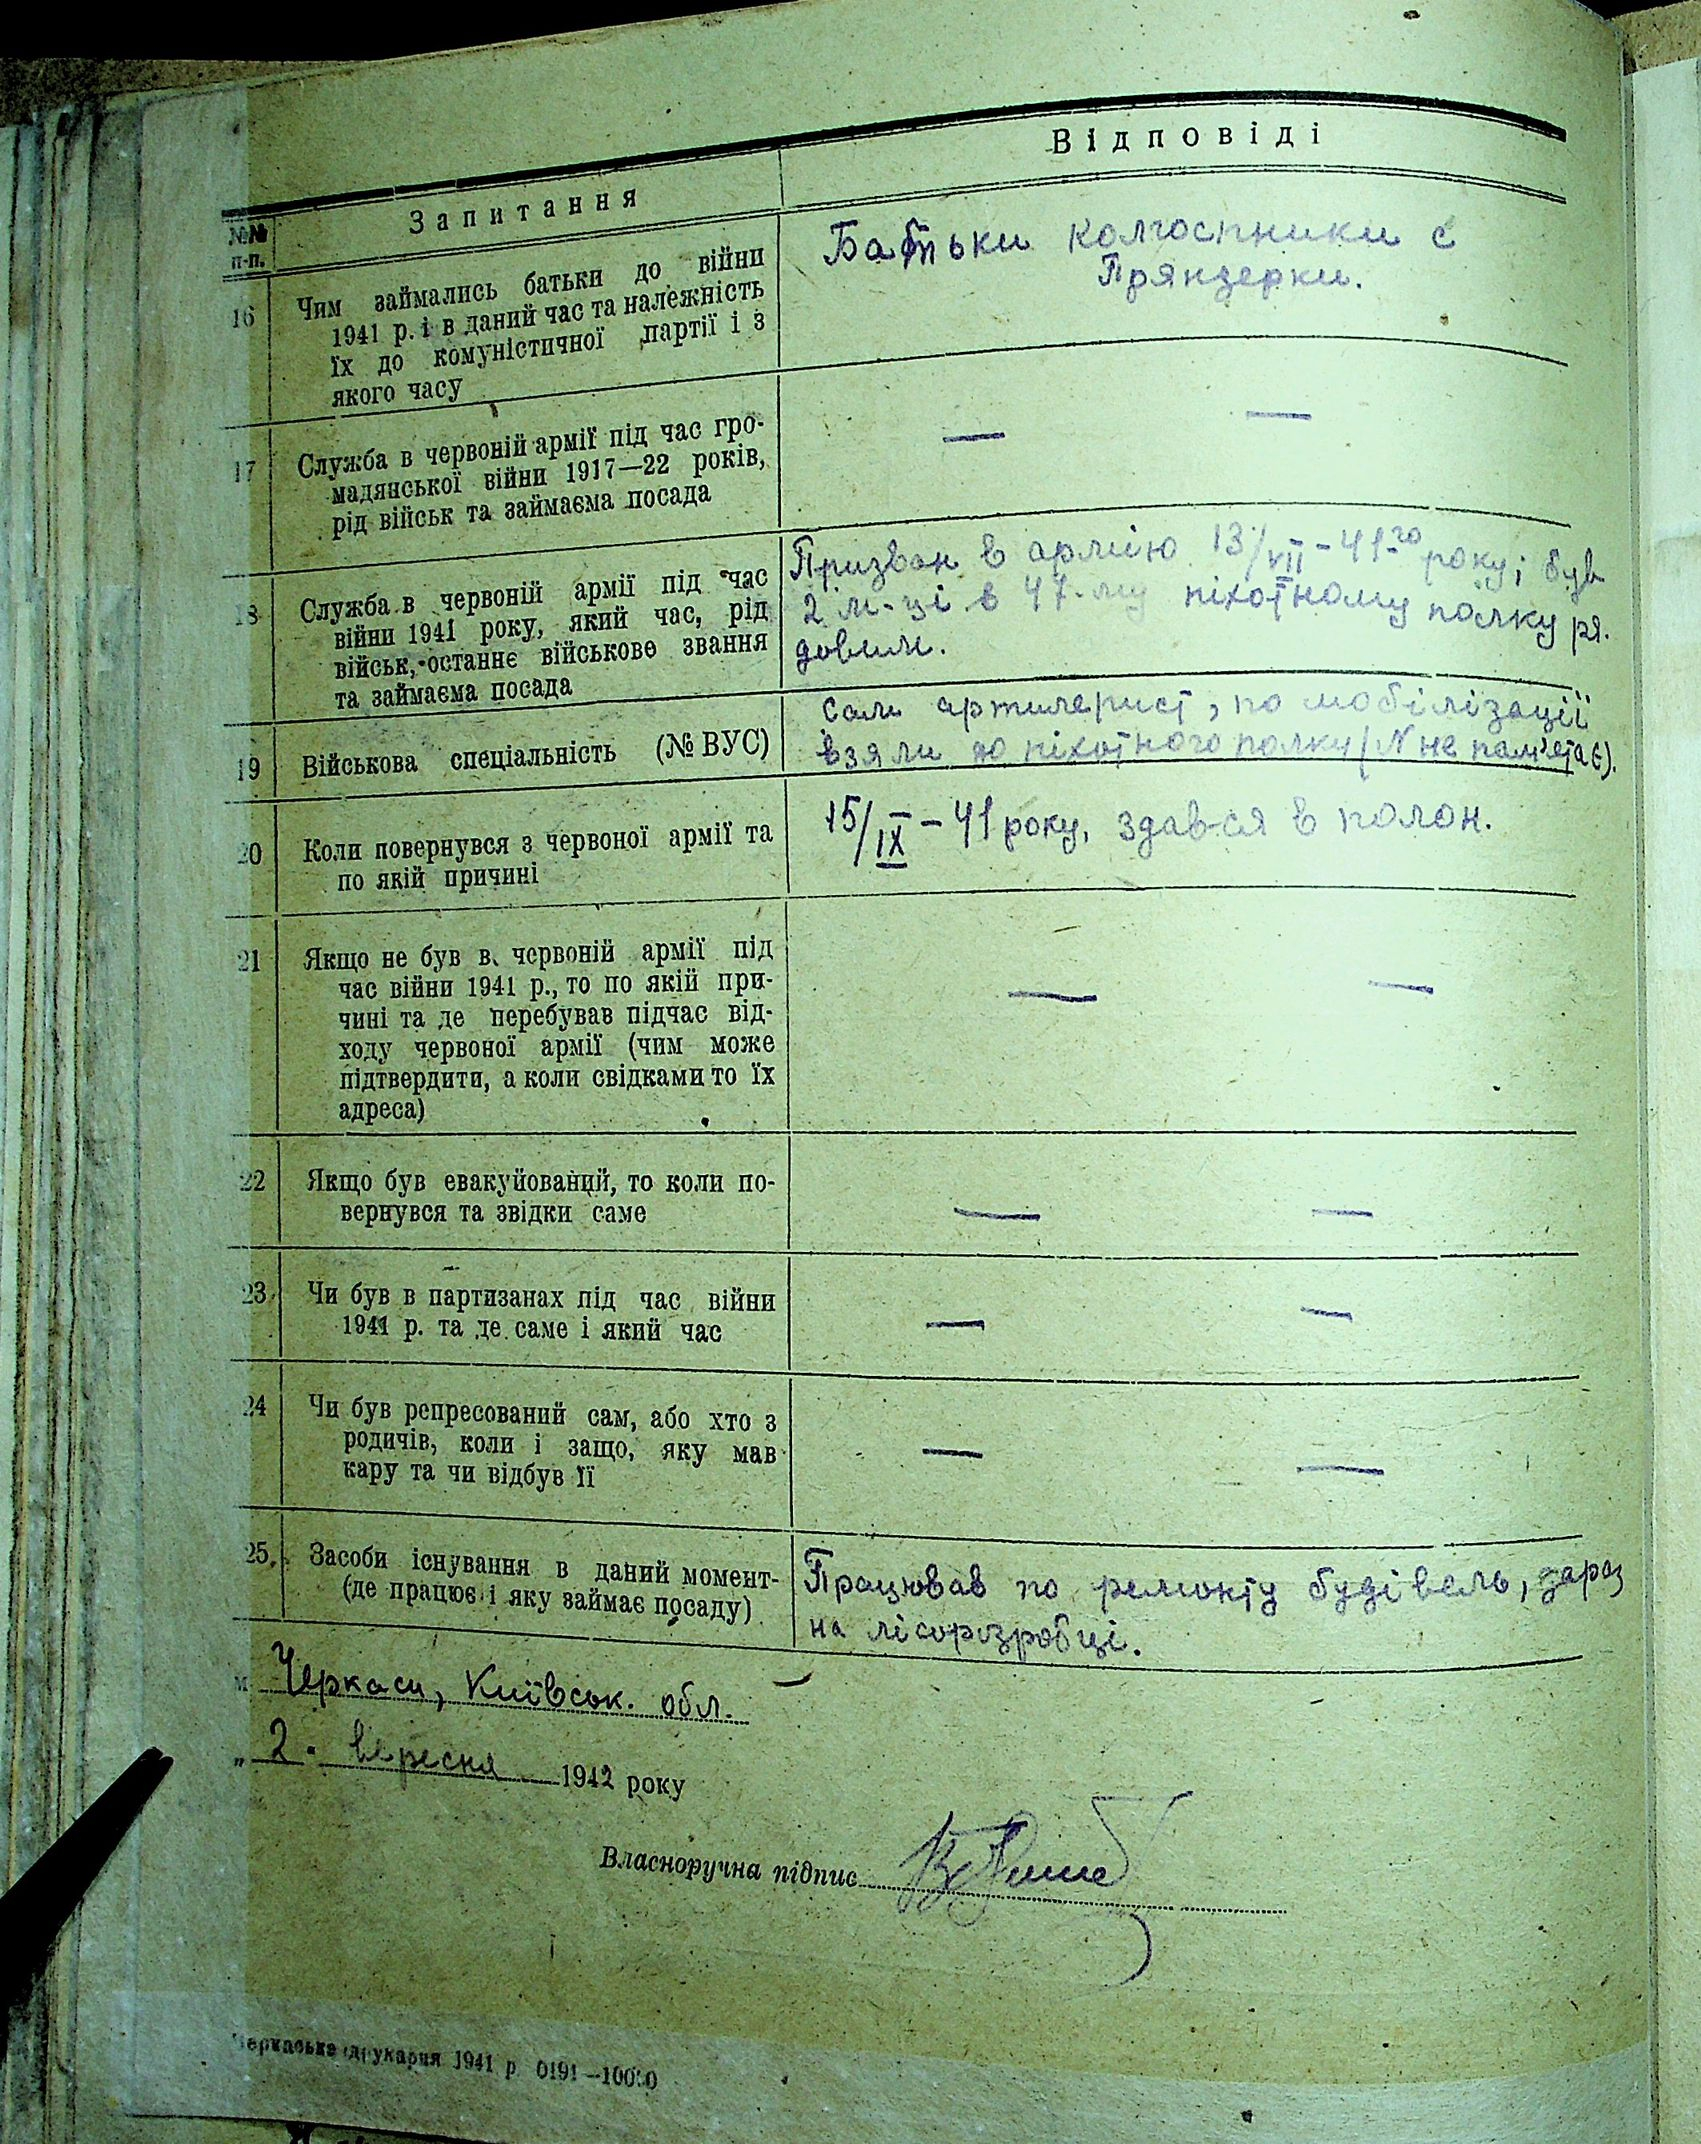 Відповіді
Запитання
№№
п-п.
16
Чим займались батьки до війни
1941 р. і в даний час та належність
їх до комуністичної партії і з
якого часу
Батьки колгоспники с
Пряндерки.
17
Служба в червоній армії під час гро-
мадянської війни 1917—22 років,
рід військ та займаєма посада
— —
18
Служба в червоній армії під час
війни 1941 року, який час, рід
військ, останнє військове звання
та займаєма посада
Призван в армію 13/VII – 41-го року; був
2 м-ці в 47-му піхотному полку ря-
довим.
19
Військова спеціальність (№ ВУС)
Сам артилерист, по мобілізації
взяли до піхотного полку (N не пам'ятає).
20
Коли повернувся з червоної армії та
по якій причині
15/IX – 41 року, здався в полон.
21
Якщо не був в червоній армії під
час війни 1941 р., то по якій при-
чині та де перебував підчас від-
ходу червоної армії (чим може
підтвердити, а коли свідками то їх
адреса)
— —
22
Якщо був евакуйований, то коли по-
вернувся та звідки саме
— —
23
Чи був в партизанах під час війни
1941 р. та де саме і який час
— —
24
Чи був репресований сам, або хто з
родичів, коли і защо, яку мав
кару та чи відбув її
— —
25
Засоби існування в даний момент
(де працює і яку займає посаду)
Працював по ремонту будівель, зараз
на лісорозробці.
м. Черкаси, Київськ. обл.
„ 2. вересня 1942 року
Власноручна підпис
Черкаська друкарня 1941 р 0191—10000